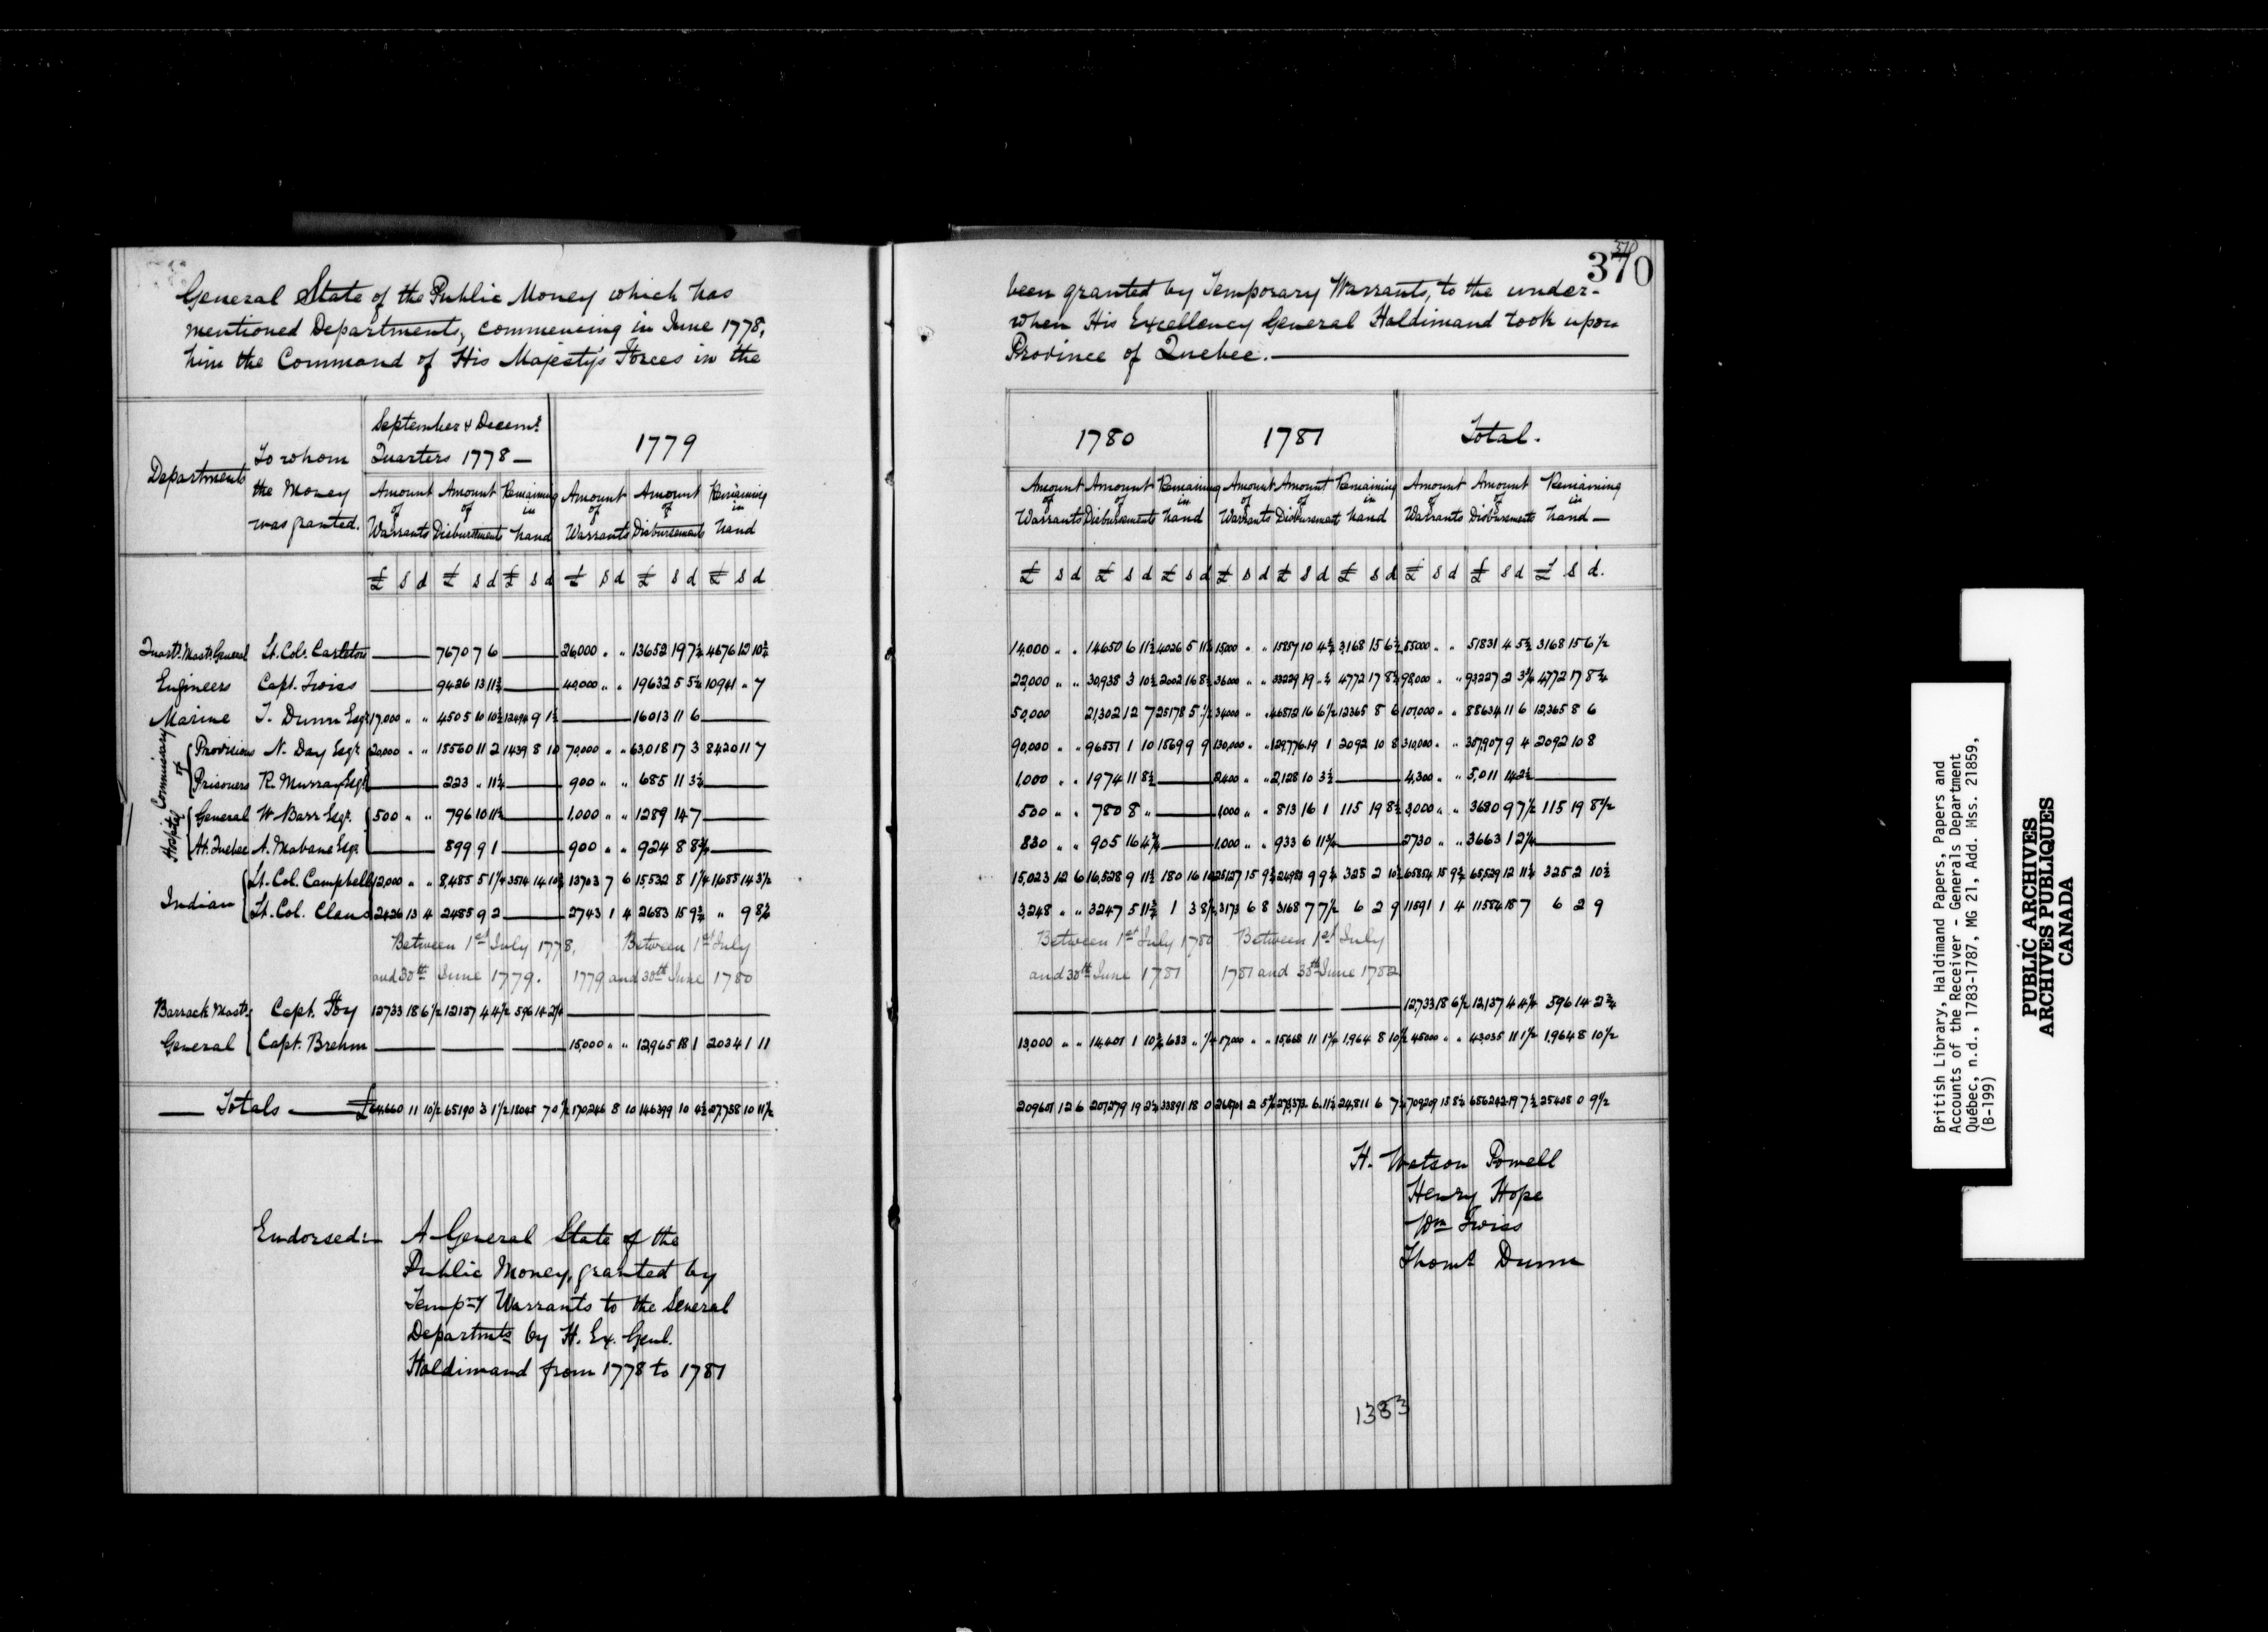 370
370
General State of the Public Money which has been granted by Temporary Warrants, to the under-
mentioned Departments, commencing in June 1778, when His Excellency General Haldimand took upon
him the Command of His Majesty's Forces in the Province of Quebec.
Departments To whom the Money was granted. September & Decemr. Quarters 1778 1779 1780 1781 Total.
Amount of Warrants Amount of Disbursements Remaining in hand Amount of Warrants Amount of Disbursements Remaining in hand Amount of Warrants Amount of Disbursements Remaining in hand Amount of Warrants Amount of Disbursement Remaining in hand Amount of Warrants Amount of Disbursements Remaining in hand
£ s d £ s d £ s d £ s d £ s d £ s d £ s d £ s d £ s d £ s d £ s d £ s d £ s d £ s d £ s d.
Quartr. Mastr. General Lt. Col. Carleton — 7670 7 6 — 26,000 " " 13652 19 7½ 4676 12 10½ 14,000 " " 14650 6 11½ 4026 5 11½ 15000 " " 15857 10 4½ 3,168 15 6½ 55000 " " 51831 4 5½ 3168 15 6 1/2
Engineers Capt. Twiss — 9426 13 11½ — 40,000 " " 19632 5 5½ 10941 " 7 22,000 " " 30,938 3 10½ 2002 16 8½ 36000 " " 33229 19 " ½ 4772 17 8¾ 98,000 " " 93227 2 3¼ 4772 17 8¾
Marine T. Dunn Esqr. 17,000 " " 4505 10 10½ 12494 9 1½ — 16013 11 6 — 50,000 21,302 12 7 25178 5 ½ 34000 " " 46812 16 6½ 12365 8 6 101,000 " " 88634 11 6 12,365 8 6
Commissary of Provisions N. Day Esqr. 20,000 " " 18560 11 2 1439 8 10 70,000 " " 63,018 17 3 8420 11 7 90,000 " " 96551 1 10 1869 9 9 130,000 " " 129,776 19 1 2092 10 8 310,000 " " 307,907 9 4 2092 10 8
Prisoners R. Murray Esqr. — 223 " 11½ — 900 " " 685 11 3½ — 1,000 " " 1974 11 8½ — 2,400 " " 2,128 10 3½ — 4,300 " " 5,011 14 2½ —
Hospital General W. Barr Esqr. 500 " " 796 10 11½ — 1,000 " " 1289 14 7 — 500 " " 780 8 " — 1,000 " " 813 16 1 115 19 8½ 3,000 " " 3680 9 7½ 115 19 8 1/2
At Quebec A. Mabane Esqr. — 899 9 1 — 900 " " 924 8 8¾ — 830 " " 905 16 4¾ — 1,000 " " 933 6 11¾ — 2730 " " 3663 1 2¼ —
Indian Lt. Col. Campbell 12,000 " " 8,485 5 1¼ 3514 14 10½ 13703 7 6 15532 8 1¼ 1685 14 3½ 15,023 12 6 16,528 9 11½ 180 16 10 25127 15 9½ 24983 9 9¼ 325 2 10½ 65854 15 9½ 65,529 12 11½ 325 2 10½
Lt. Col. Claus 2426 13 4 2485 9 2 — 2743 1 4 2683 15 9½ " 9 8½ 3,248 " " 3247 5 11½ 1 3 8½ 3173 6 8 3168 7 7½ 6 2 9 11591 1 4 11584 18 7 6 2 9
Between 1st July 1778, and 30th June 1779. Between 1st July 1779 and 30th June 1780 Between 1st July 1780 and 30th June 1781 Between 1st July 1781 and 30th June 1782
Barrack Mastr. Capt. Foy 12733 18 6½ 12137 4 4½ 596 14 2¼ — 12,733 18 6½ 12,137 4 4¼ 596 14 2¾
General Capt. Brehm — 15,000 " " 12,965 18 1 2034 1 11 13,000 " " 14,401 1 10¾ 633 " ¼ 17000 " " 15,668 11 1¾ 1,964 8 10½ 45000 " " 43,035 11 1½ 1,964 8 10 1/2
Totals £ 64,660 11 10½ 65190 3 1½ 18045 7 0½ 170246 8 10 146399 10 4½ 27,758 10 11½ 209601 12 6 33891 18 0 24,811 6 7½ 709209 15 8½ 25408 0 9½
H. Watson Powell
Henry Hope
Wm Twiss
Thoms Dunn
Endorsed:—
A General State of the
Public Money, granted by
Tempry Warrants to the Several
Departmts by H. Ex. Genl.
Haldimand from 1778 to 1781
1383
British Library, Haldimand Papers, Papers and
Accounts of the Receiver - Generals Department
Québec, n.d., 1783-1787, MG 21, Add. Mss. 21859,
(B-199)
PUBLIC ARCHIVES
ARCHIVES PUBLIQUES
CANADA